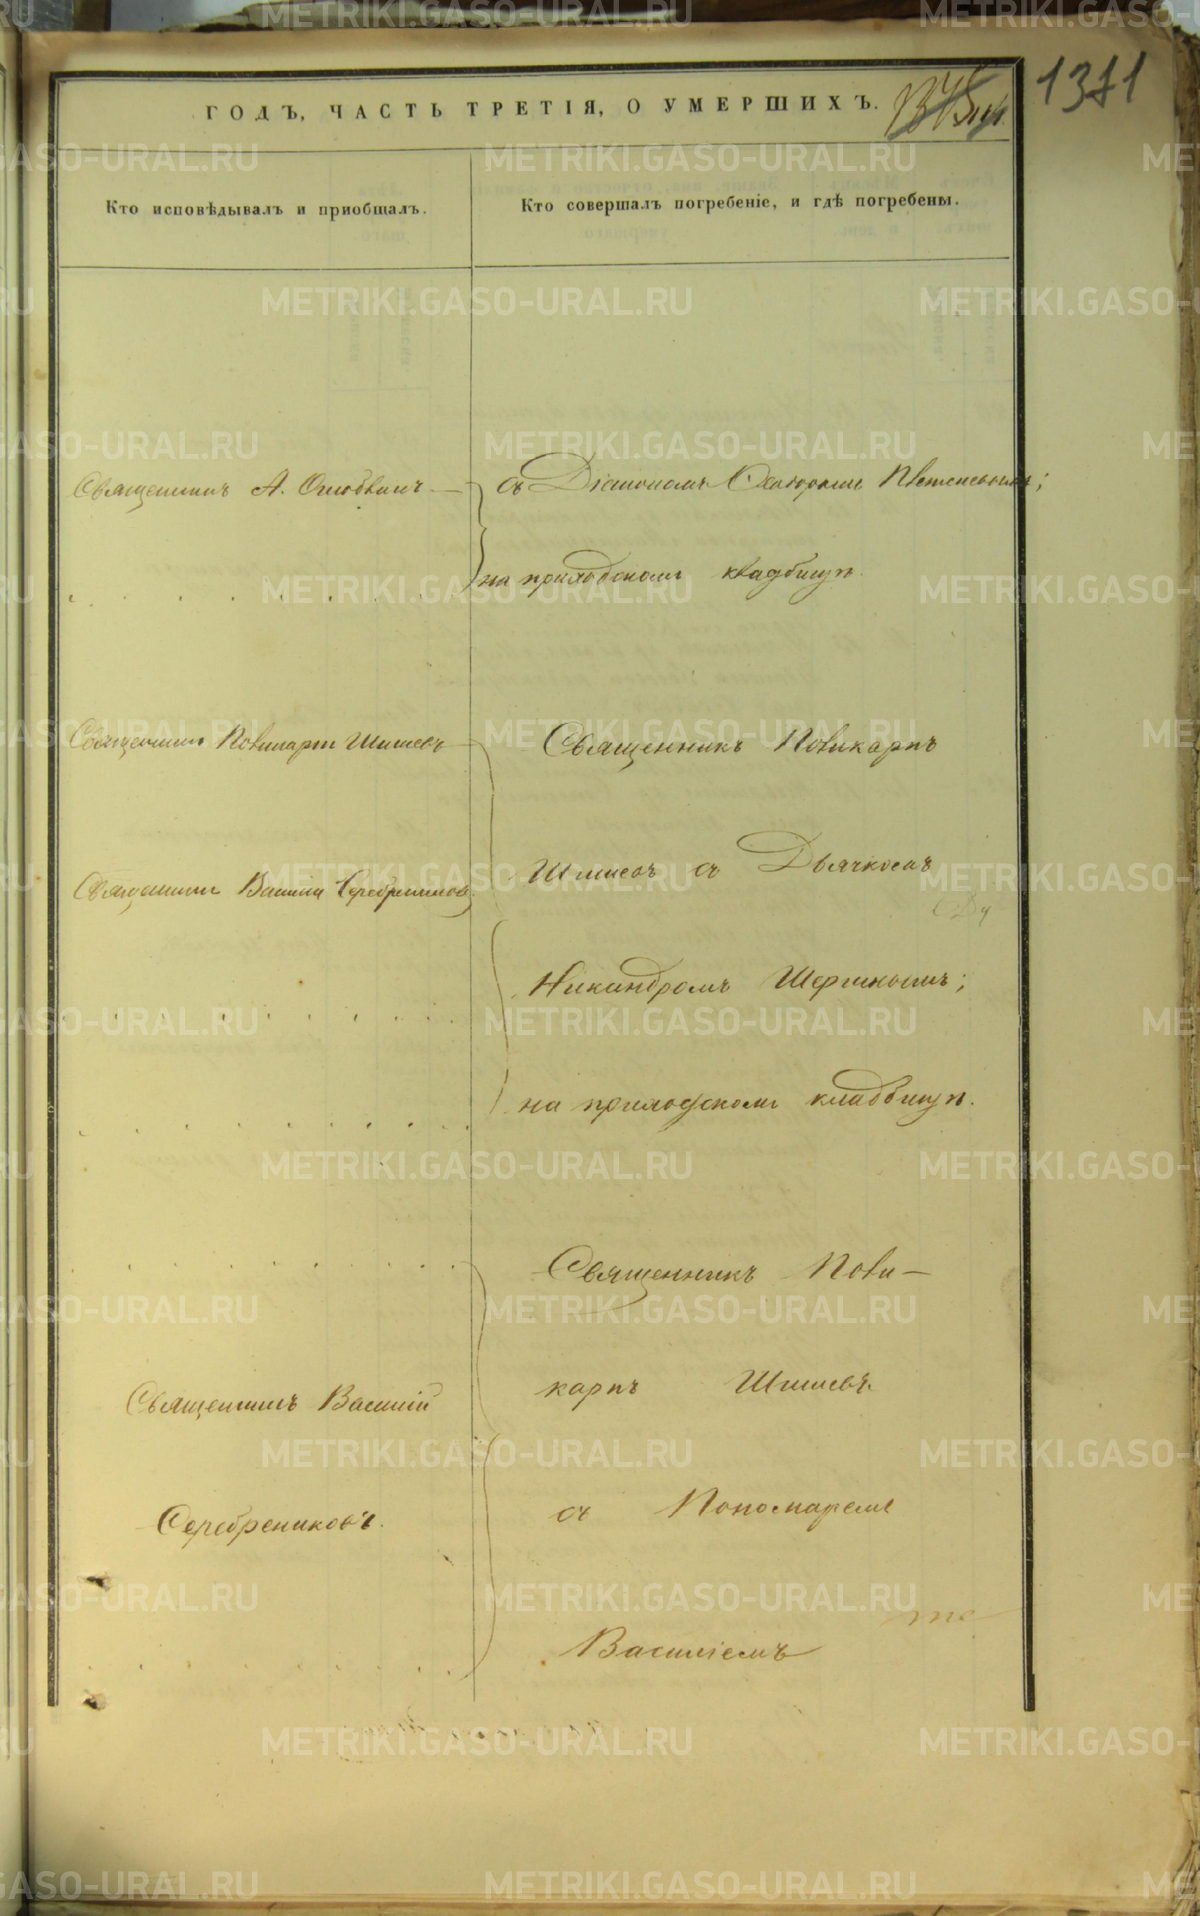 1371
ГОДЪ, ЧАСТЬ ТРЕТІЯ, О УМЕРШИХЪ.
Кто исповѣдывалъ и пріобщалъ.
Кто совершалъ погребеніе, и гдѣ погребены.
Священникъ А.
съ Діакономъ
на приходскомъ кладбищѣ.
Священникъ Поликарпъ Шишевъ
Священникъ Василій Серебрениковъ
Священникъ Поликарпъ
Шишевъ съ Дьячкомъ
Никандромъ
на приходскомъ кладбищѣ.
Священникъ Василій
Серебрениковъ.
Священникъ Поли-
карпъ Шишевъ
съ Пономаремъ
Василіемъ
METRIKI.GASO-URAL.RU